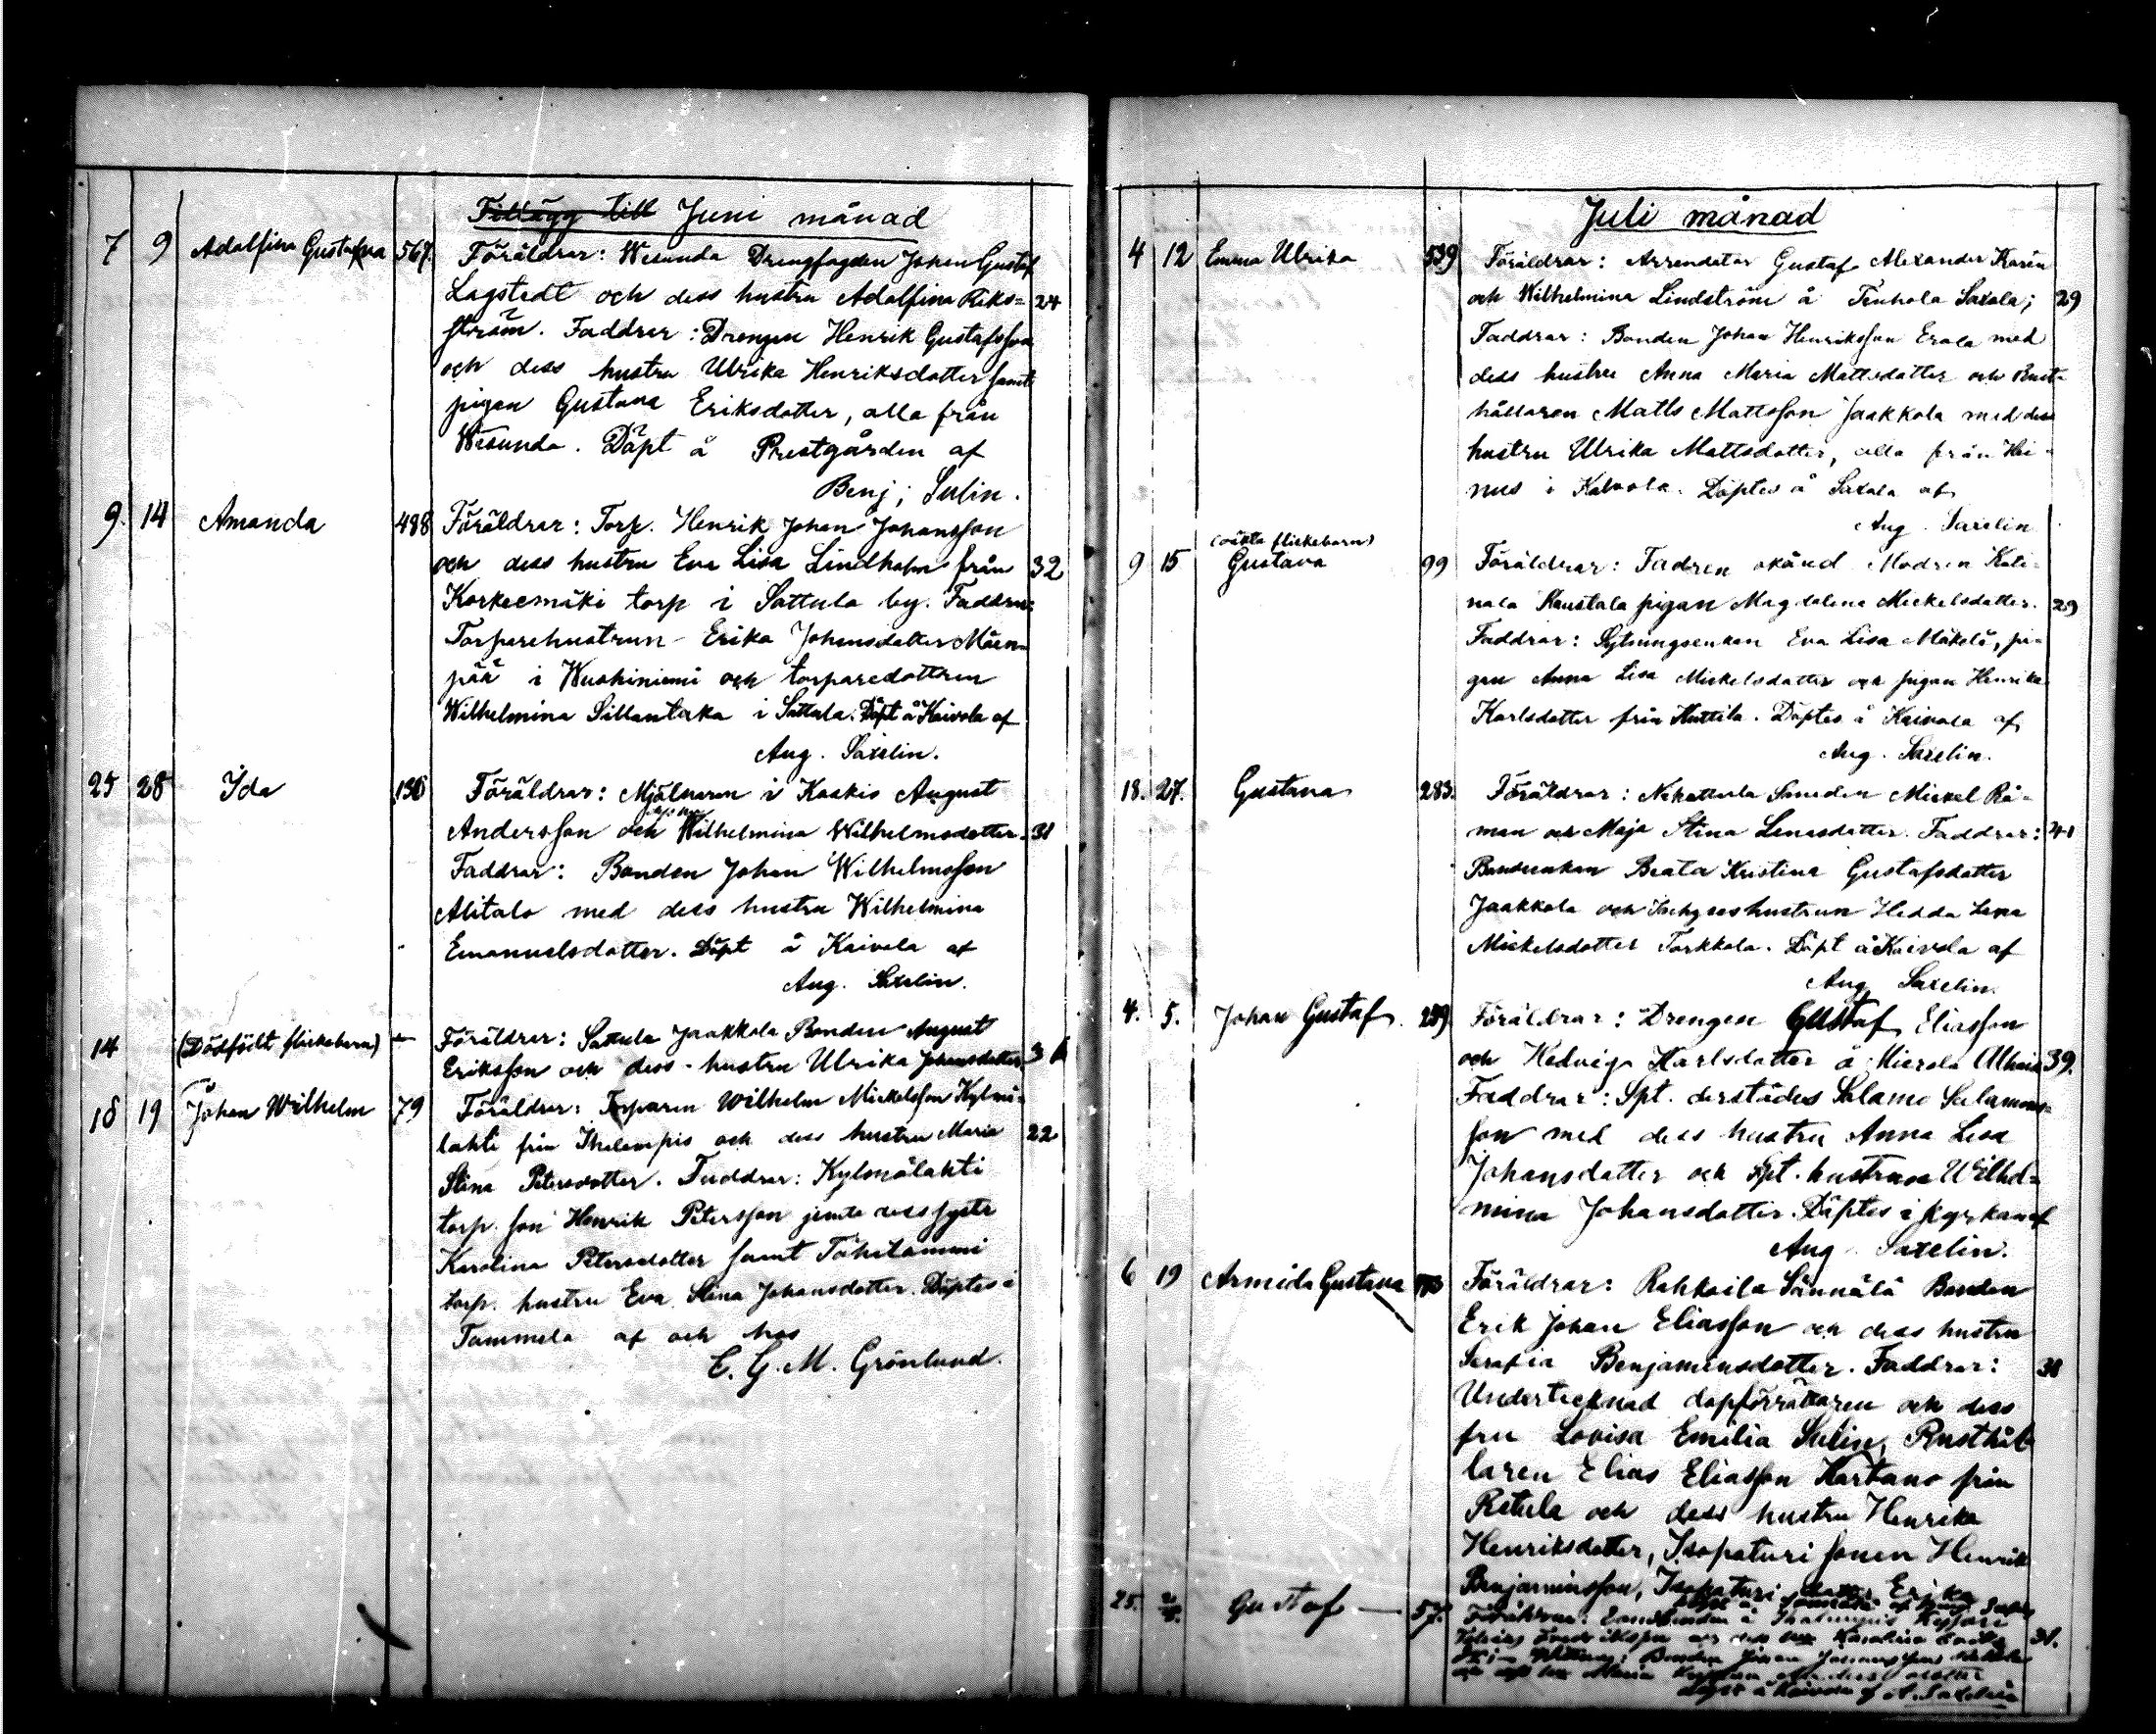 Tillägg till Juni månad
7 9 Adolfina Gustafva 567. Föräldrar: Wesunda Drengfogden Johan Gustaf
Lagstedt och dess hustru Adolfina Riks= 24
ström. Faddrar: Drengen Henrik Gustafsson
och dess hustru Ulrika Henriksdotter samt
pigan Gustava Eriksdotter, alla från
Wesunda. Döpt å Prestgården af
Benj; Sulin.
9. 14 Amanda 488 Föräldrar: Torp. Henrik Johan Johansson
och dess hustru Eva Lisa Lindholm från 32
Korkeemäki torp i Sattula by. Faddrar:
Torparehustrun Erika Johansdotter Mäen-
pää i Wuohiniemi och torparedottren
Wilhelmina Sillantaka i Sattula. Döpt å Kaivola af
Aug. Saxelin.
25 28 Ida 130 Föräldrar: Mjölnaren i Kaskis August
Andersson och Wilhelmina Wilhelmsdotter. 31
Faddrar: Bonden Johan Wilhelmsson
Alitalo med dess hustru Wilhelmina
Emanuelsdotter. Döpt å Kaivola af
Aug. Saxelin.
14 (Dödfödt flickebarn) — Föräldrar: Sattula Jaakkola Bonden August
Eriksson och dess hustru Ulrika Johansdotter
18 19 Johan Wilhelm 79 Föräldrar: Torparen Wilhelm Mickelsson Kylmä-
lahti från Ihalempis och dess hustru Maria 22
Stina Petersdotter. Faddrar: Kylmälahti
torp. son Henrik Petersson jemte dess syster
Karolina Petersdotter samt Tähtlammi
torp. hustru Eva Stina Johansdotter. Döptes i
Tammela af och hos
C. G. M. Grönlund.
Juli månad
4 12 Emma Ulrika 539 Föräldrar: Arrendator Gustaf Alexander Karén
och Wilhelmina Lindström å Tenhola Saxala; 29
Faddrar: Bonden Johan Henriksson Erola med
dess hustru Anna Maria Mattsdotter och Rust-
hållaren Matts Mattsson Jaakkola med dess
hustru Ulrika Mattsdotter, alla från Hei-
nus i Kalvola. Döptes å Saxala af
Aug. Saxelin
(oäkta flickebarn)
9 15 Gustava 99 Föräldrar: Fadren okänd Modren Kati-
nala Knuutala pigan Magdalena Mickelsdotter. 29
Faddrar: Sytningsenkan Eva Lisa Mäkelä, pi-
gan Anna Lisa Mickelsdotter och pigan Henrika
Karlsdotter från Huttila. Döptes å Kaivola af
Aug. Saxelin.
18. 27. Gustava 283. Föräldrar: Nihattula Smeden Mickel Rå-
man och Maja Stina Lenasdotter. Faddrar: 41
Bondenkan Beata Kristina Gustafsdotter
Jaakkola och Inhyseshustrun Hedda Lena
Mickelsdotter Torkkola. Döpt å Kaivola af
Aug Saxelin.
4. 5. Johan Gustaf. 289 Föräldrar: Drengen Gustaf Eliasson
och Hedvig Karlsdotter å Mierola Alhais 39.
Faddrar: Spt. derstädes Salamo Salamons-
son med dess hustru Anna Lisa
Johansdotter och Spt. hustrun Wilhel-
mina Johansdotter. Döptes i kyrkan af
Aug. Saxelin.
6 19 Armida Gustava Föräldrar: Rahkoila Sännälä Bonden
Erik Johan Eliasson och dess hustru
Serafia Benjaminsdotter. Faddrar: 38
Undertecknad dopförrättaren och dess
fru Lovisa Emilia Sulin, Rusthål-
laren Elias Eliasson Kartano från
Retula och dess hustru Henrika
Henriksdotter, Isopaturi sonen Henrik
Benjaminsson, Isopaturi dotter Erika
25. Gustaf — 57. Föräldrar:
31.
Döpt å Kaivola af A. Saxelin